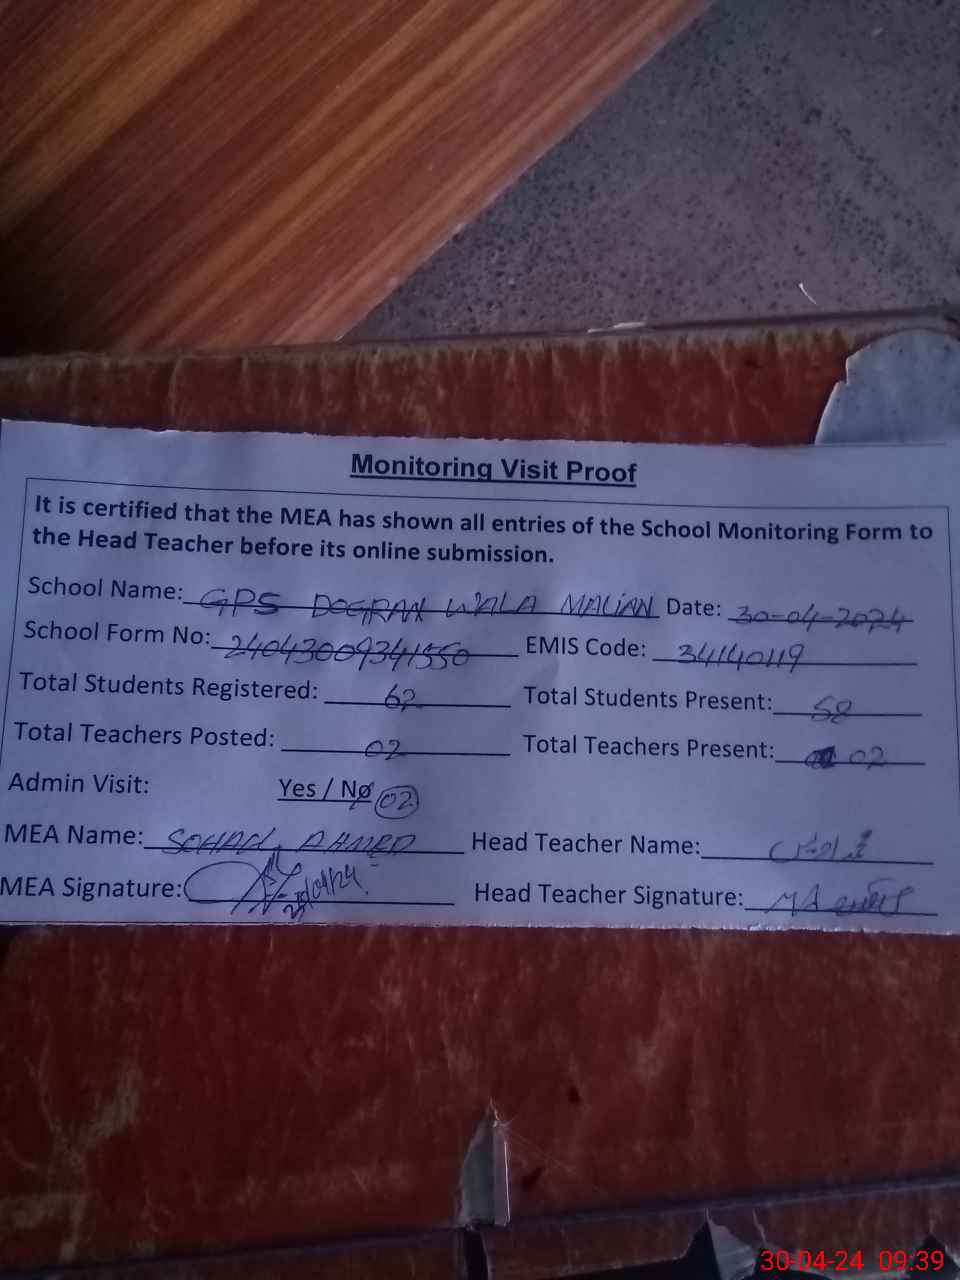 Monitoring Visit Proof
It is certified that the MEA has shown all entries of the School Monitoring Form to
the Head Teacher before its online submission.
School Name: GPS DOGRAN WALA MALIAN Date: 30-04-2024
School Form No: 24043009341550 EMIS Code: 34140119
Total Students Registered: 62 Total Students Present: 58
Total Teachers Posted: 02 Total Teachers Present: 02
Admin Visit: Yes / No 02
MEA Name: SOHAIL AHMED Head Teacher Name:
MEA Signature: Head Teacher Signature:
30-04-24 09:39